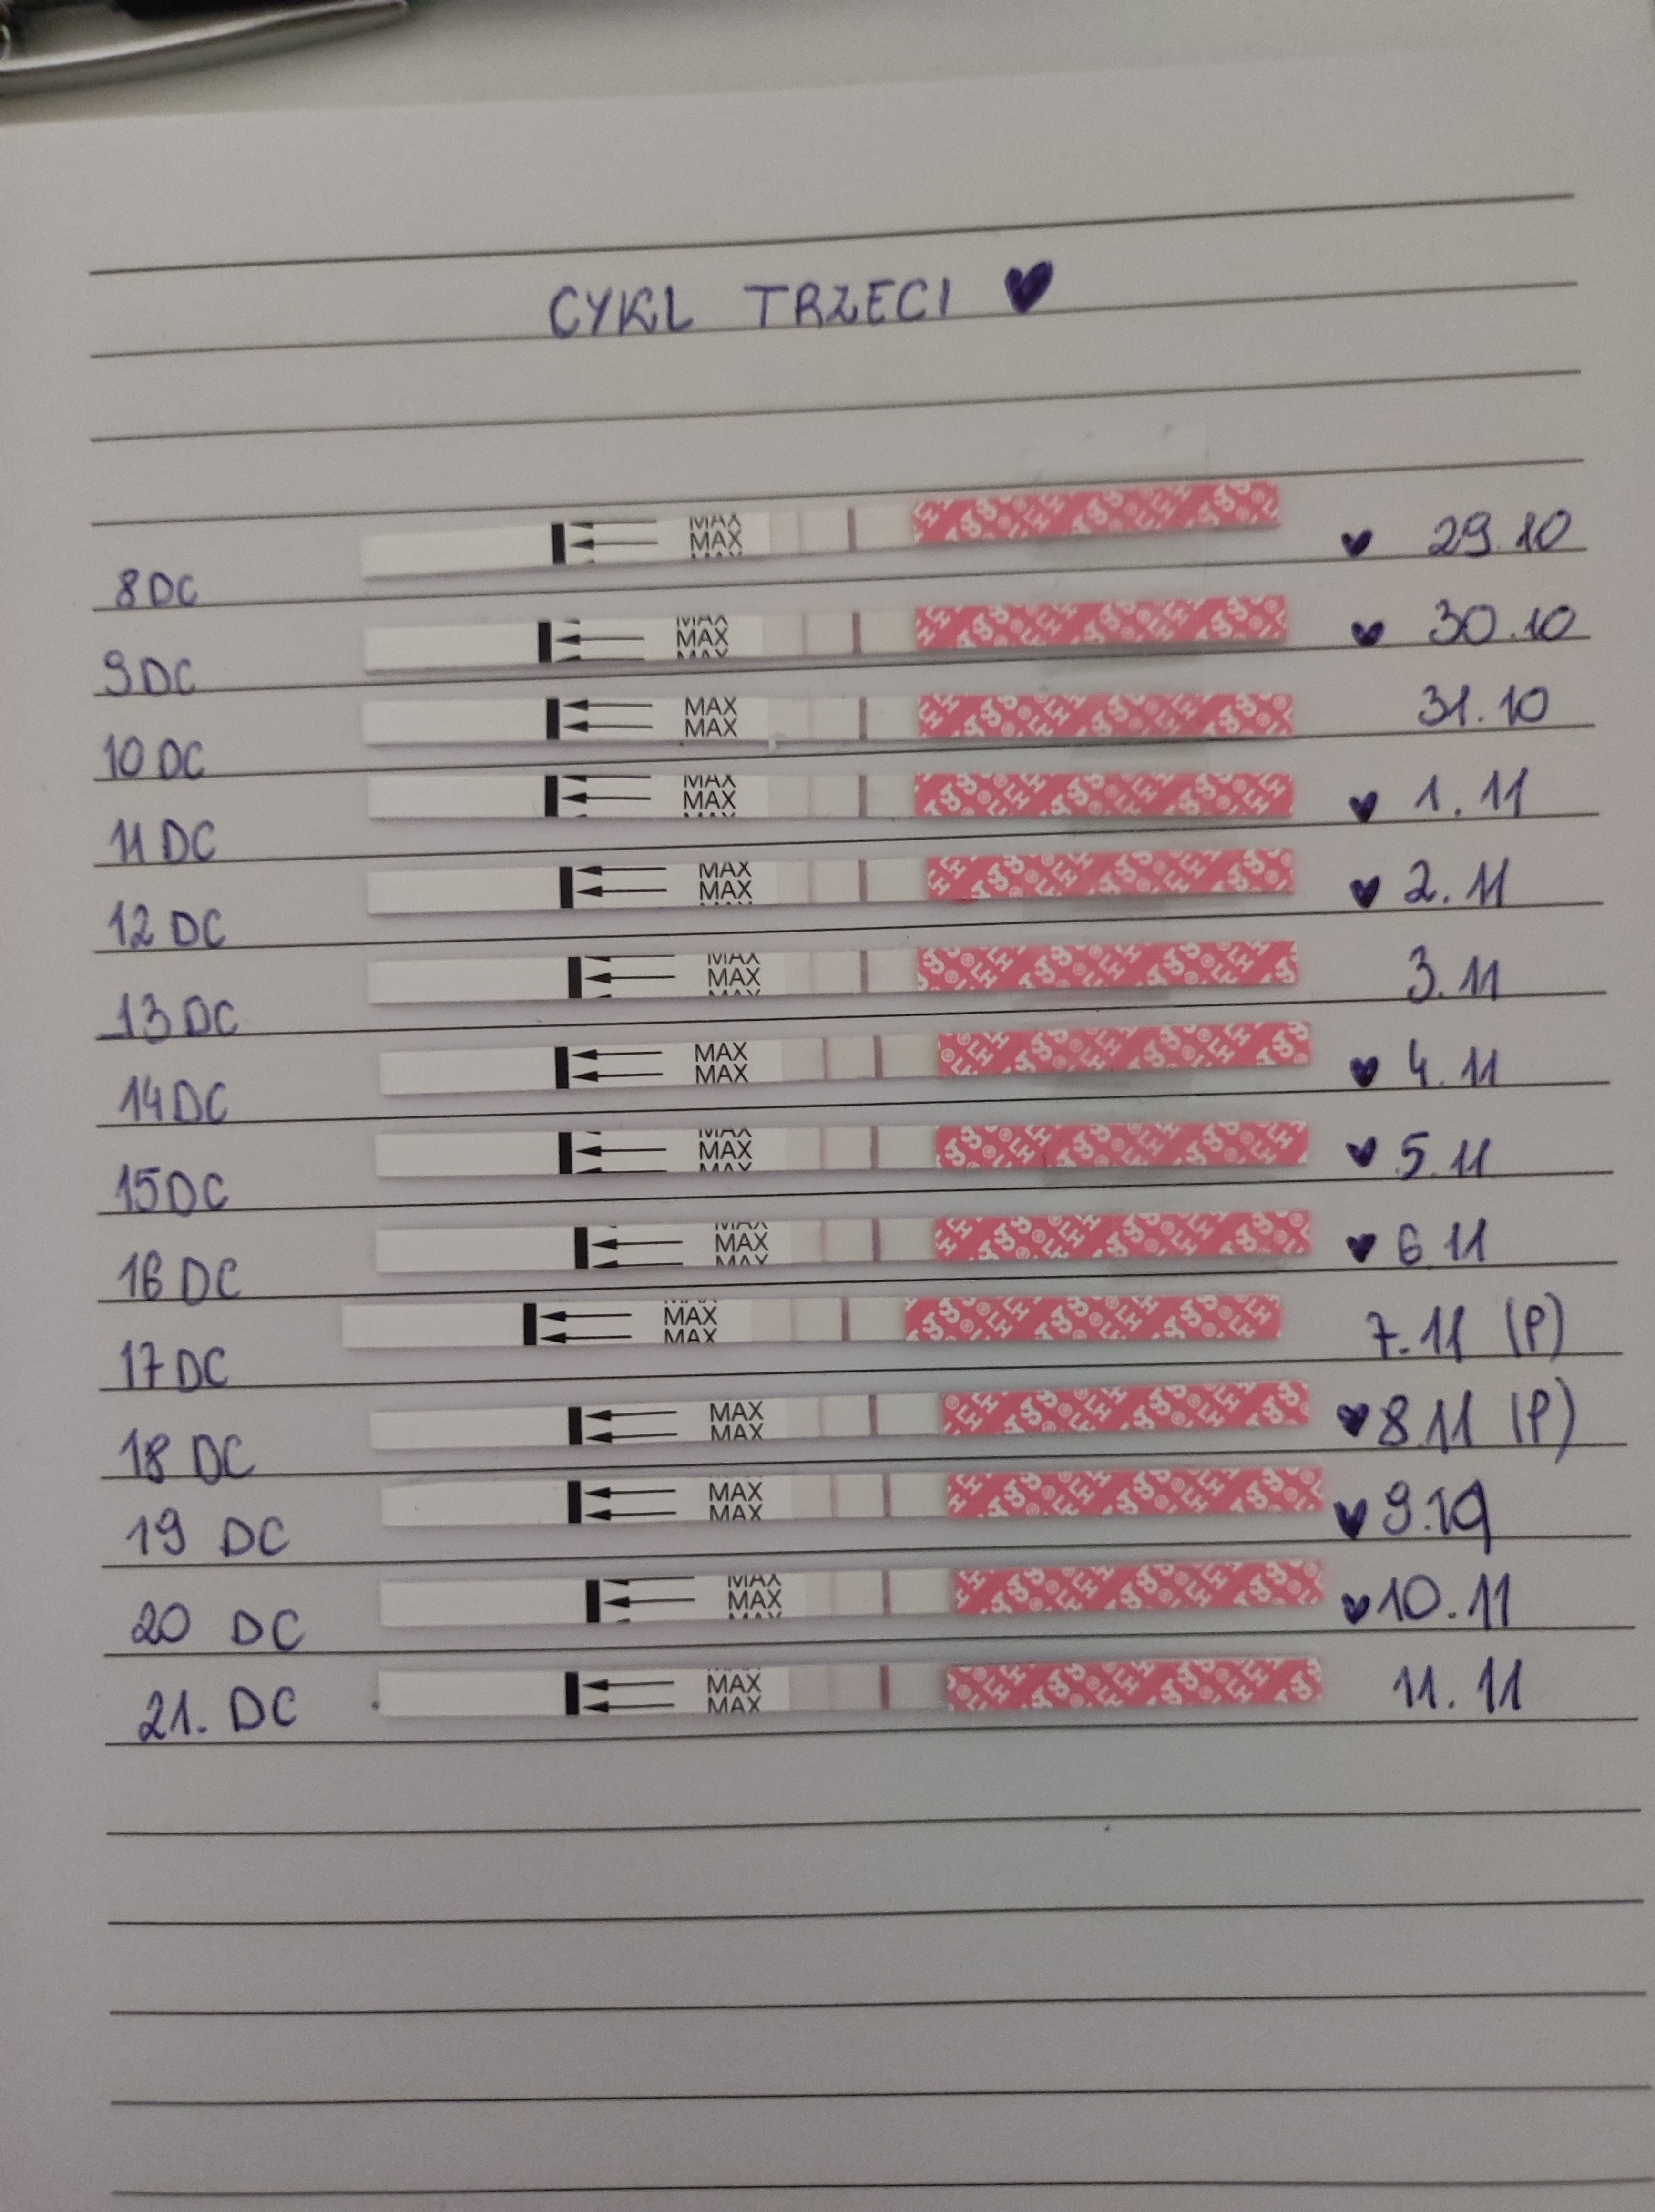 CYKL TRZECI ♥
8 DC MAX MAX ♥ 29.10
9 DC MAX MAX MAX ♥ 30.10
10 DC MAX MAX 31.10
11 DC MAX MAX ♥ 1.11
12 DC MAX MAX ♥ 2.11
13 DC MAX MAX MAX 3.11
14 DC MAX MAX ♥ 4.11
15 DC MAX MAX MAX ♥ 5.11
16 DC MAX MAX MAX ♥ 6.11
17 DC MAX MAX 7.11 (P)
18 DC MAX MAX ♥ 8.11 (P)
19 DC MAX MAX ♥ 9.10
20 DC MAX MAX MAX ♥ 10.11
21. DC MAX MAX 11.11